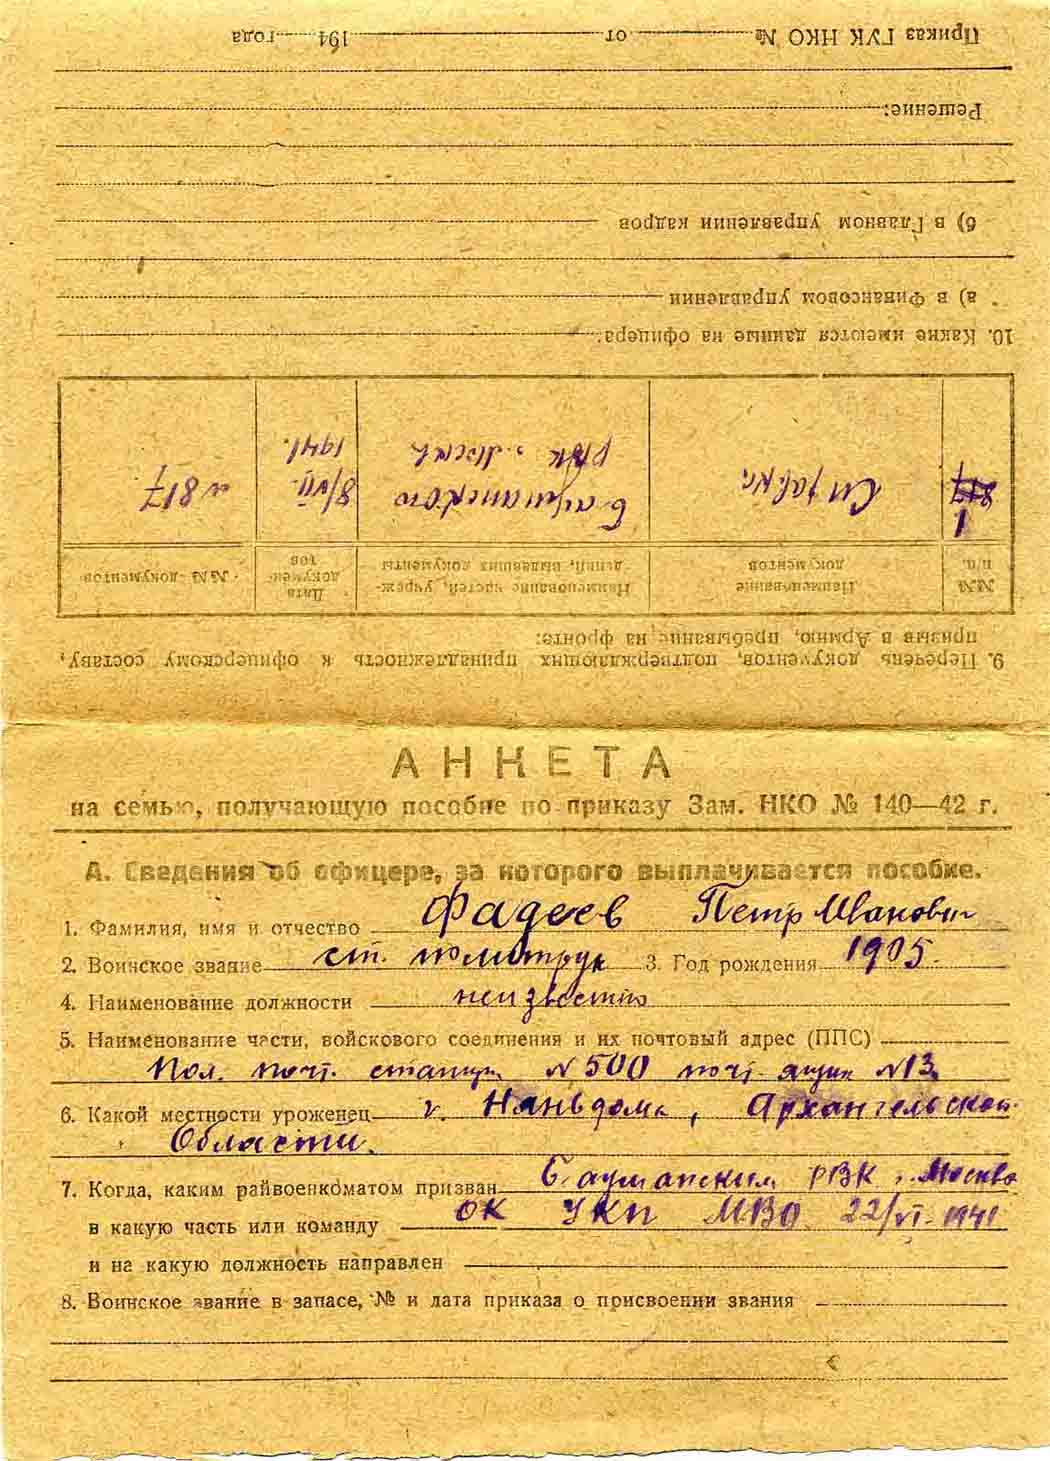 АНКЕТА
на семью, получающую пособие по приказу Зам. НКО № 140—42 г.
А. Сведения об офицере, за которого выплачивается пособие.
1. Фамилия, имя и отчество Фадеев Петр Иванович
2. Воинское звание ст. политрук 3. Год рождения 1905.
4. Наименование должности неизвестно
5. Наименование части, войскового соединения и их почтовый адрес (ППС)
Пол. почт. станция N 500 почт. ящик N 13
6. Какой местности уроженец г. Няньдома, Архангельской
Области.
7. Когда, каким райвоенкоматом призван Бауманским РВК г. Москва
в какую часть или команду ОК УКП МВО 22/VI-1941
и на какую должность направлен
8. Воинское звание в запасе, № и дата приказа о присвоении звания
9. Перечень документов, подтверждающих принадлежность к офицерскому составу,
призыв в Армию, пребывание на фронте:
№№ п.п. Наименование документов Наименование частей, учреждений, выдавших документы Дата документов №№ документов
1 817 Справка Бауманского РВК г. Москвы 8/VII. 1941. N 817
10. Какие имеются данные на офицера:
а) в Финансовом управлении
б) в Главном управлении кадров
Решение:
Приказ ГУК НКО № от 194 года